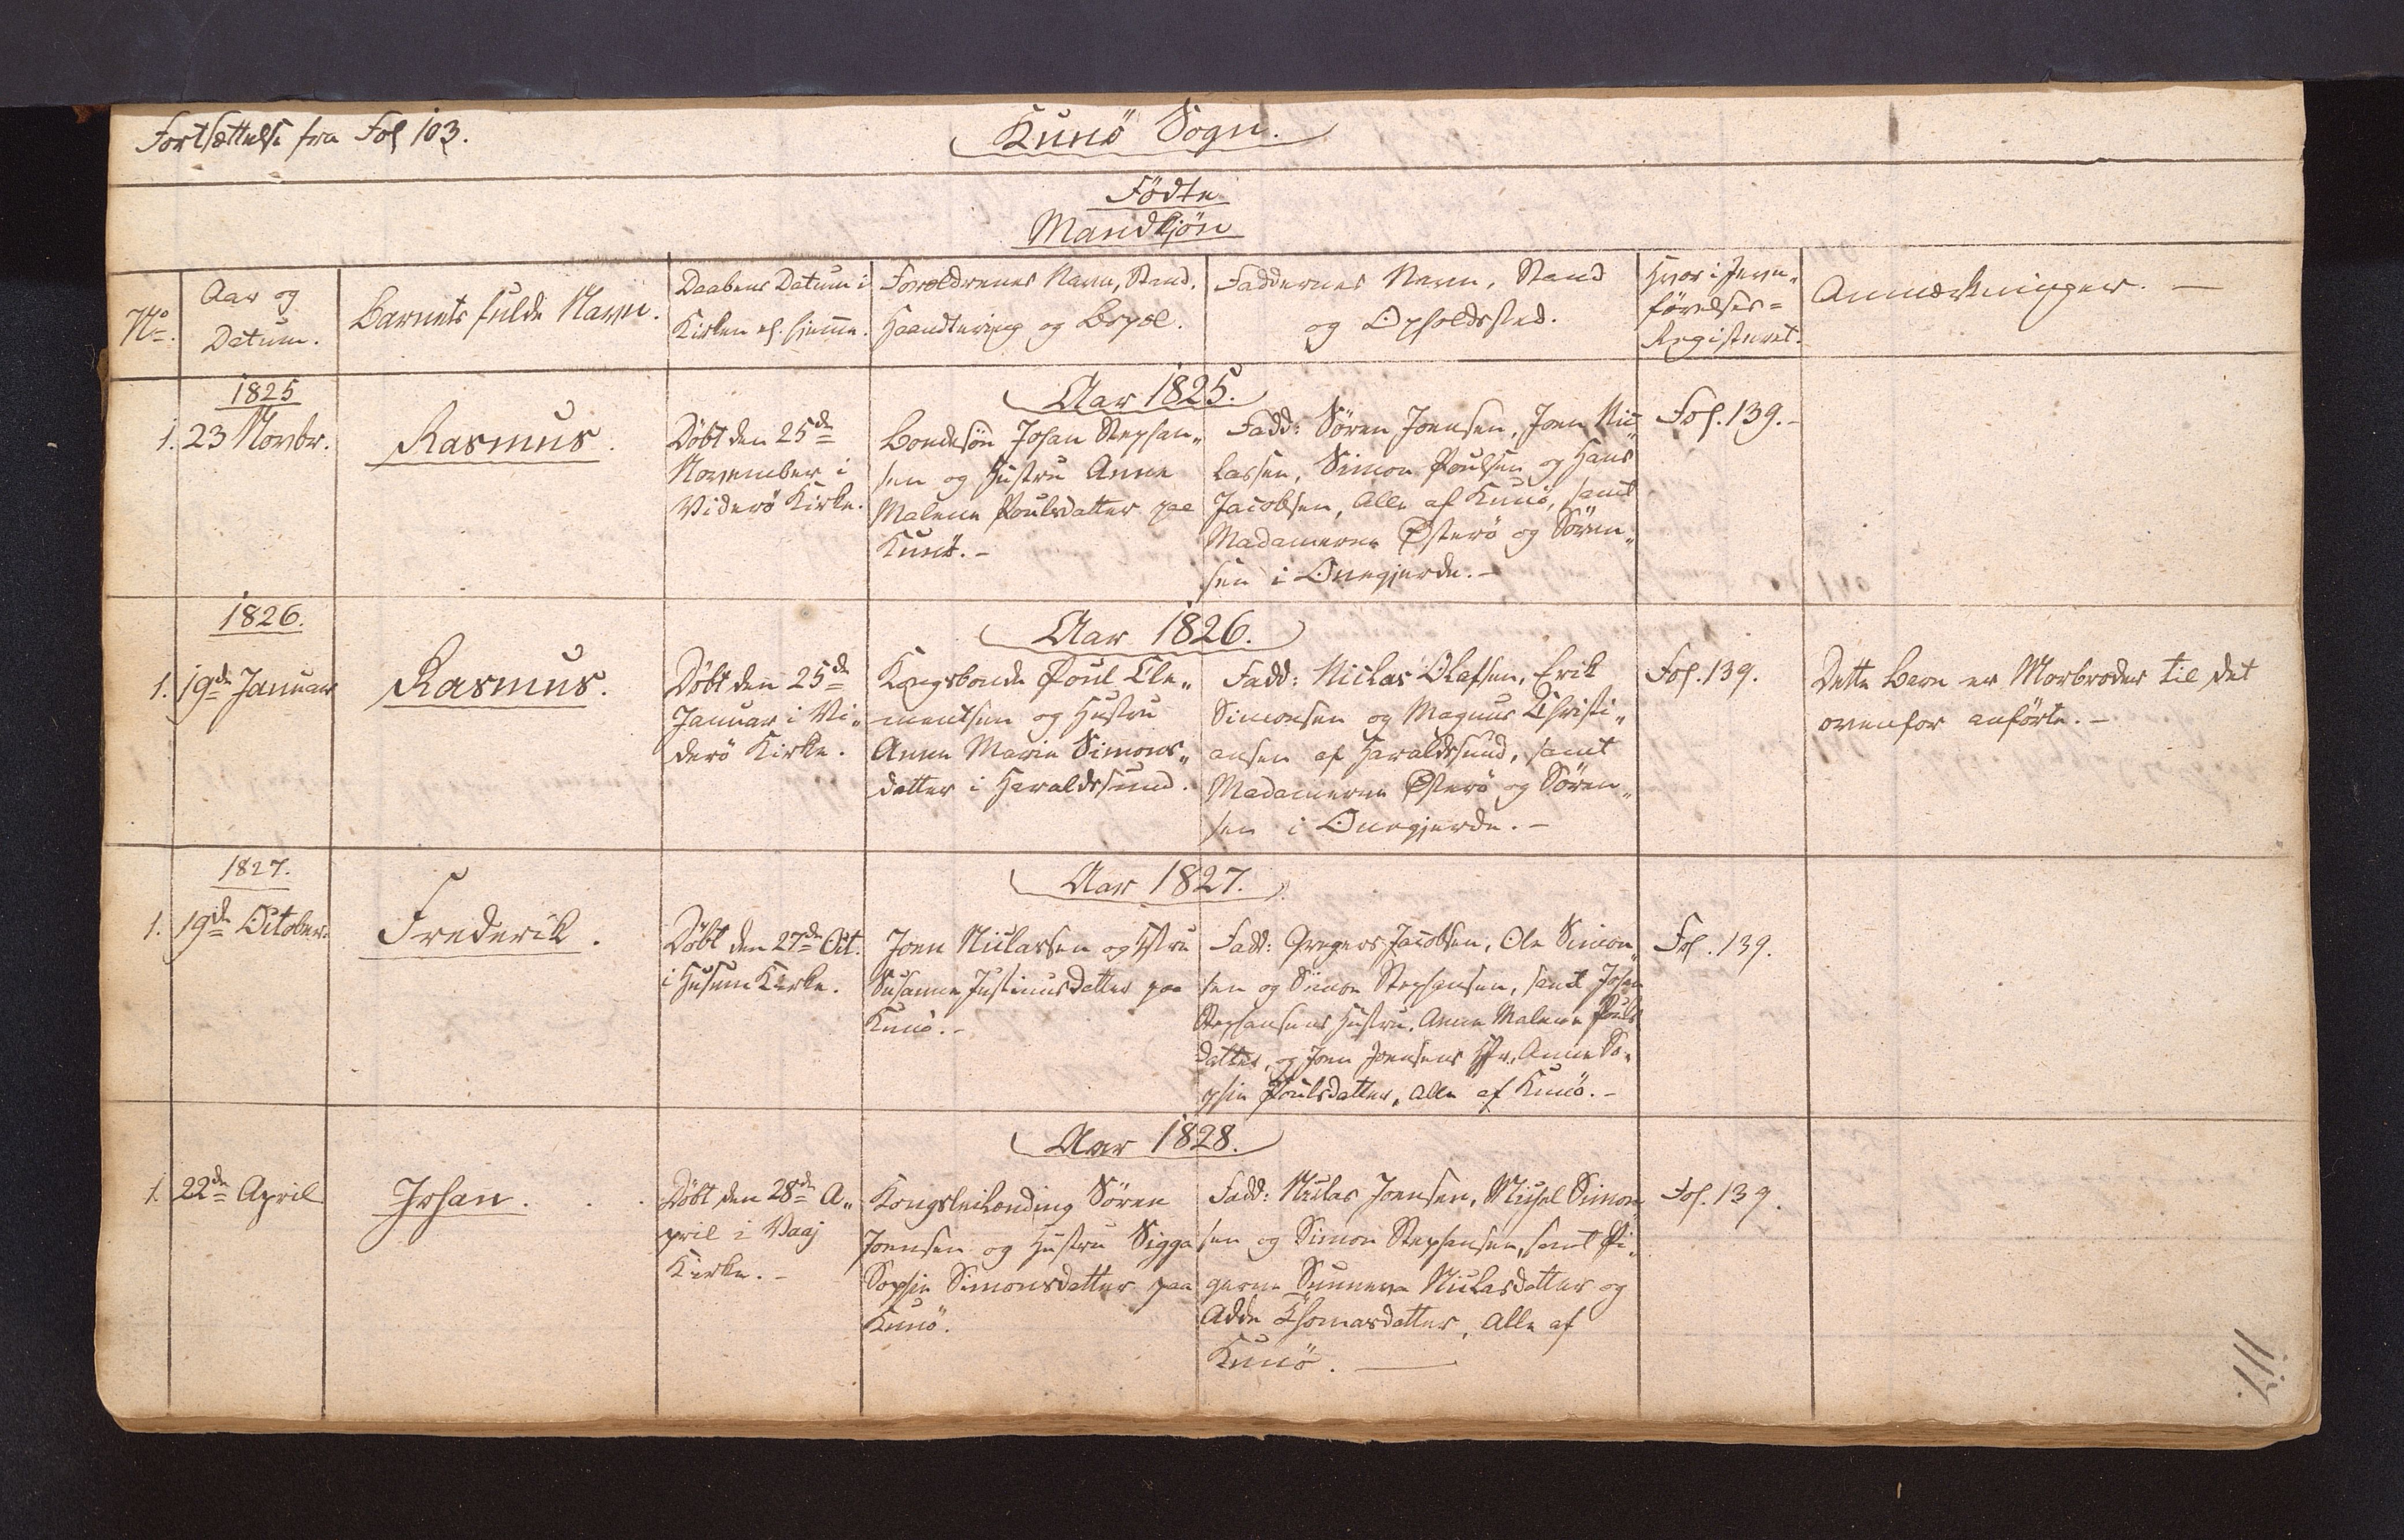 Fortsættelse fra Fol 103.
Kunö Sogn.
Födte
Mandkjön
No.
Aar og
Datum.
Barnets fulde Navn.
Daabens Datum i
Kirken el. hjemme.
Forældrenes Navn, Stand,
Haandtering og Bopæl.
Faddernes Navn, Stand
og Opholdssted.
Hvor i Jevn„
förelses=
Registeret.
Anmærkninger. —
1825
Aar 1825.
1.
23 Novbr.
Rasmus.
Döbt den 25de
November i
Viderö Kirke.
Bondesön Johan Stephan„
sen og Hustru Anne
Malene Poulsdatter paa
Kunö. –
Fadd: Sören Joensen, Joen Nic„
lassen, Simon Poulsen og Hans
Jacobsen, alle af Kunö, samt
Madamerne Østerö og Sören„
sen i Önegjerde. –
Fol. 139. –
1826.
Aar 1826.
1.
19de Januar
Rasmus.
Döbt den 25de
Januar i Vi„
derö Kirke.
Kongsbonde Poul Cle„
mentsen og Hustru
Anne Marie Simons„
datter i Haraldssund.
Fadd: Niclas Olafsen, Erik
Simonsen og Magnus Christi„
ansen af Haraldssund, samt
Madamerne Østerö og Sören„
sen i Önegjerde. –
Fol. 139.
Dette Barn er Morbroder til det
ovenfor anförte. –
1827.
Aar 1827.
1.
19de October.
Frederik.
Döbt den 27de Oct.
i Husum Kirke.
Joen Niclassen og Hstru
Susanne Justinusdatter paa
Kunö. –
Fadd: Gregers Jacobsen, Ole Simon„
sen og Simon Stephansen, samt Johan
Stephansens Hustru, Anne Malene Pouls
datter, og Joen Joensens Hstr. Anne So„
phie Poulsdatter, alle af Kunö. –
Fol. 139.
Aar 1828.
1.
22de April
Johan.
Döbt den 28de A„
pril i Vaaj
Kirke. –
Kongsleilænding Sören
Joensen og Hustru Sigga
Sophie Simonsdatter paa
Kunö.
Fadd: Niclas Joensen, Michel Simon„
sen og Simon Stephansen, samt Pi„
gerne Sunneva Niclasdatter og
Adde Thomasdatter, alle af
Kunö. —
Fol. 139.
117.